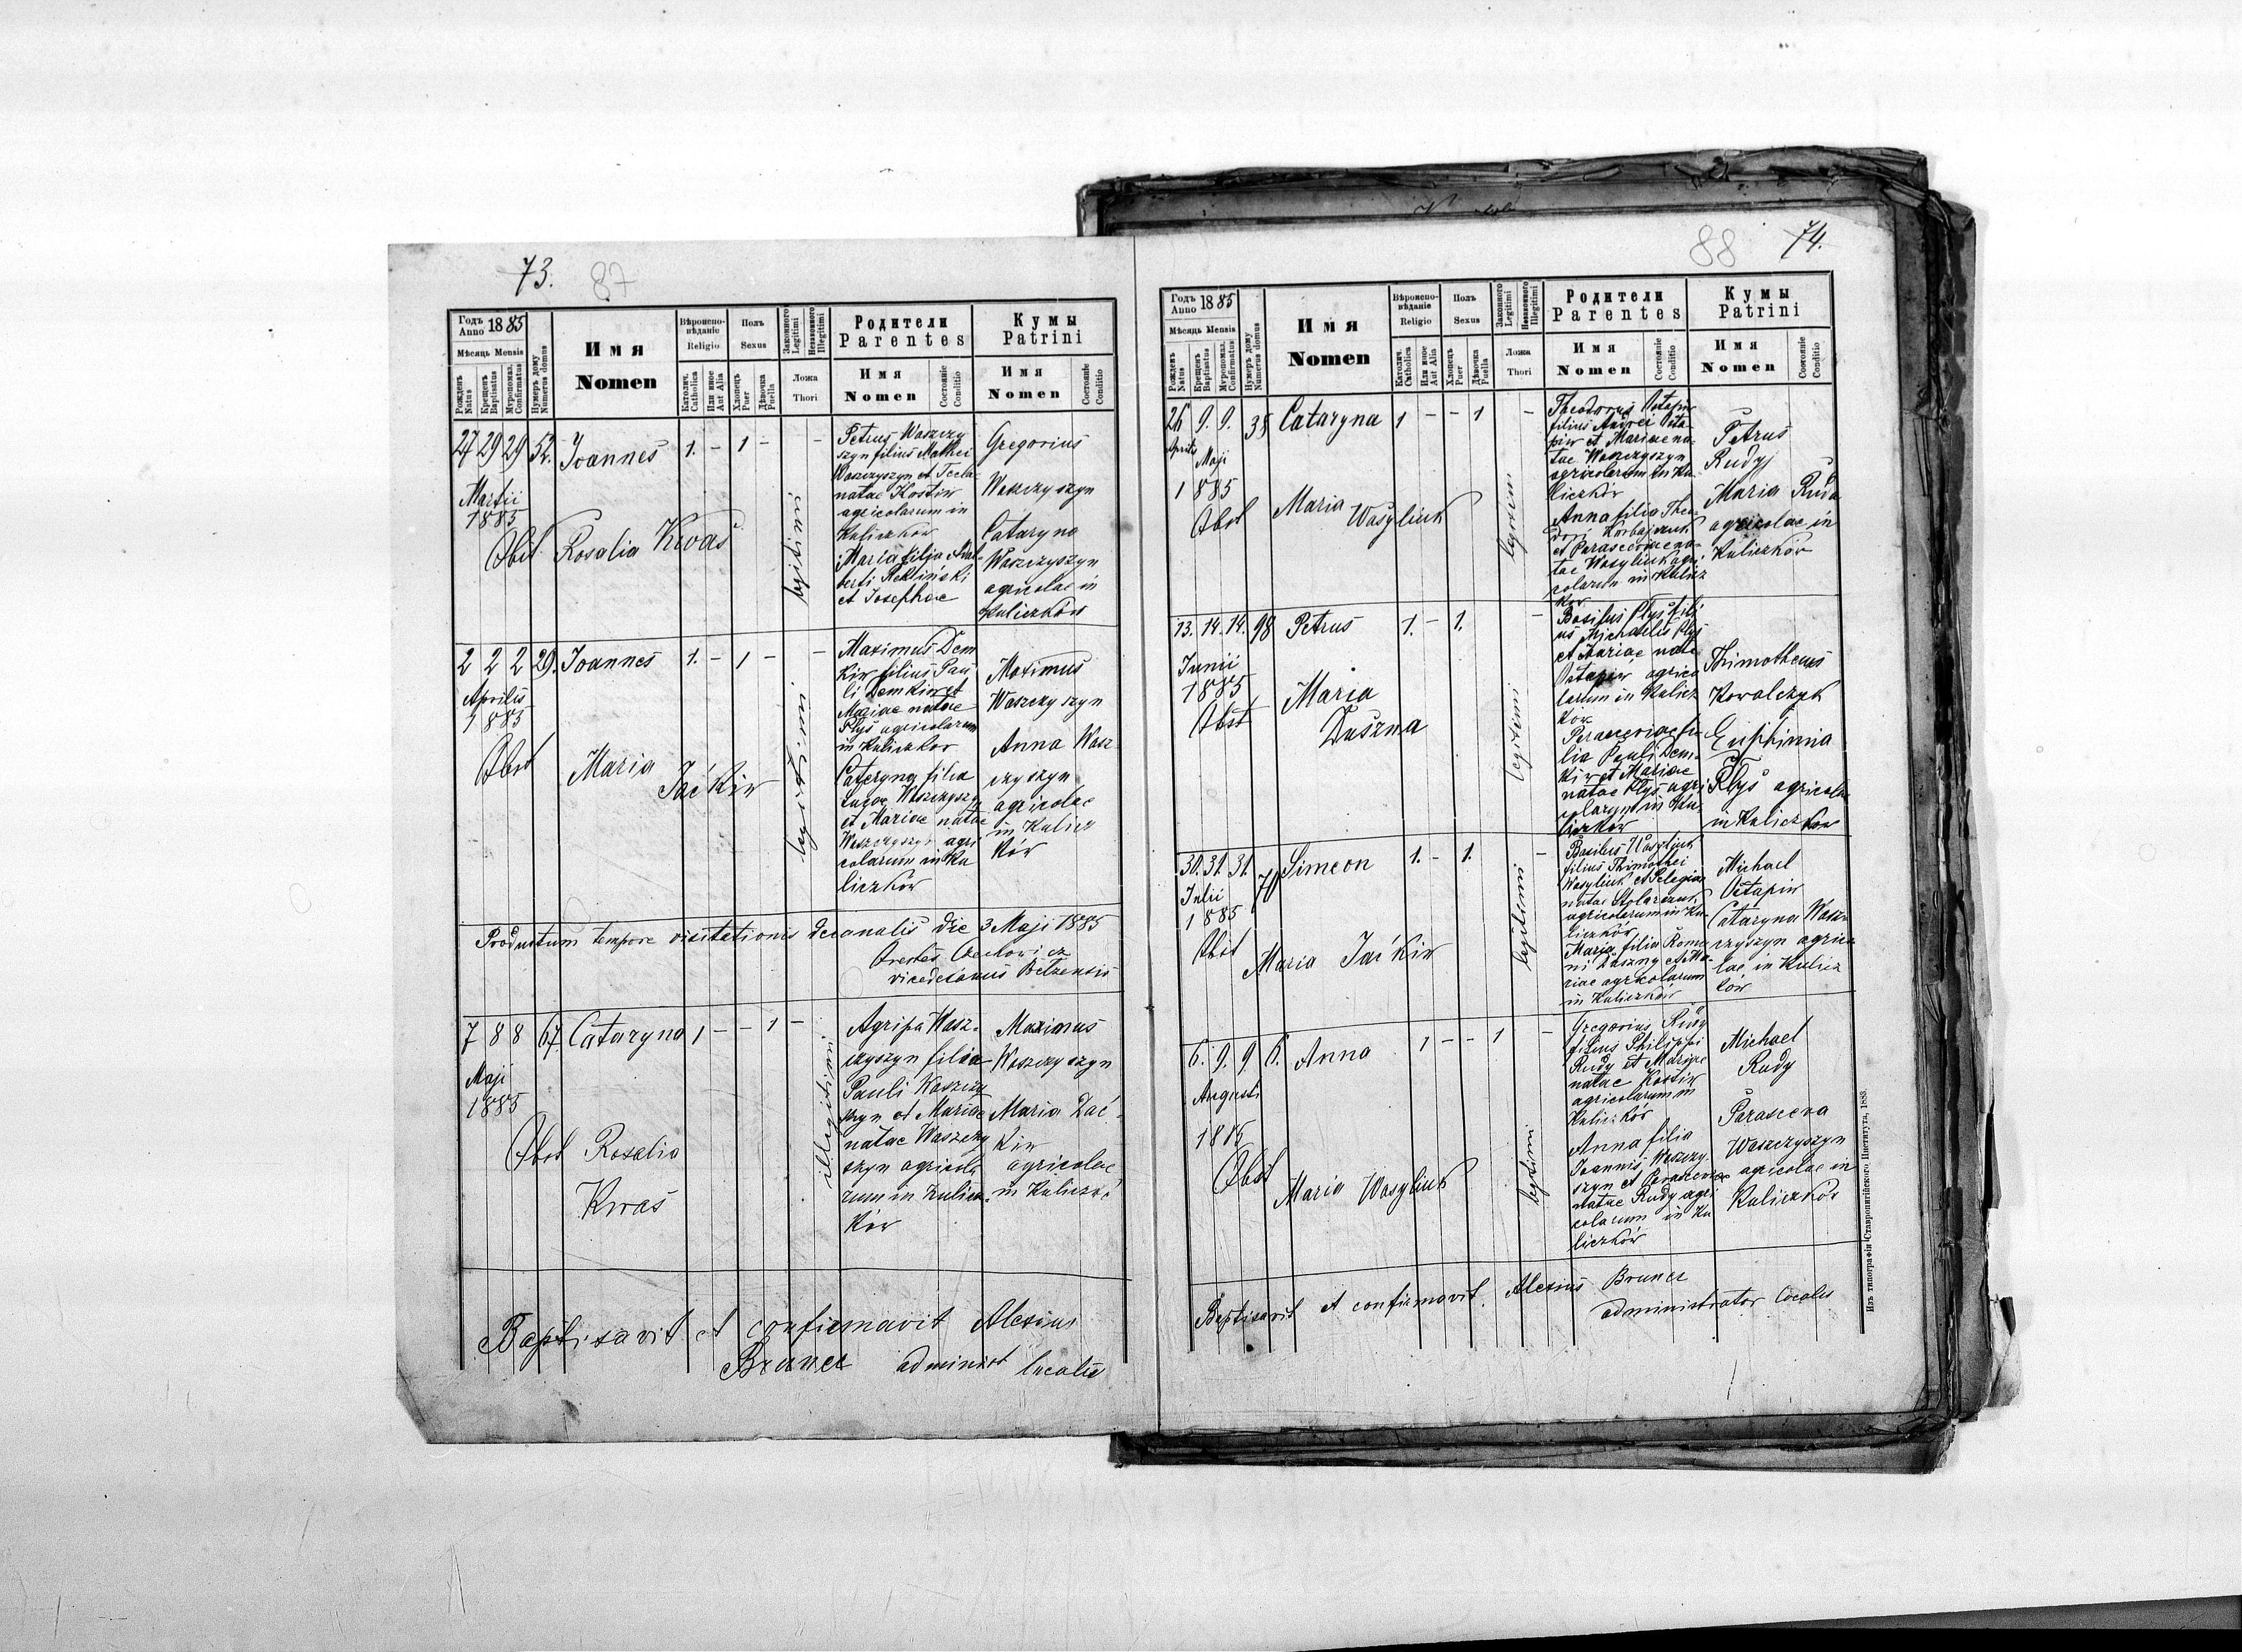 73.
87
Годъ
Anno 1885
Мѣсяць Mensis
Рожденъ
Natus
Крещенъ
Baptisatus
Муропомаз.
Confirmatus
Нумеръ дому
Numerus domus
Имя
Nomen
Вѣроиспо-
вѣданіе
Religio
Католич.
Catholica
Или иное
Aut Alia
Полъ
Sexus
Хлопець
Puer
Дѣвочка
Puella
Законного
Legitimi
Незаконного
Illegitimi
Ложа
Thori
Родители
Parentes
Имя
Nomen
Состояніе
Conditio
Кумы
Patrini
Имя
Nomen
Состояніе
Conditio
27 29 29 52. Joannes 1. - 1 - -
Martii
1885
Obst. Rosalia Kwas
legitimi
Petrus Waszczy
szyn filius Mathei
Waszczyszyn et Tecla
natae Kostiw
agricolarum in
Kuliczków
Maria filia Adal-
berti Rekliński
et Josephae
Gregorius
Waszczyszyn
Cataryna
Waszczyszyn
agricolae in
Kuliczków
2 2 2 29. Joannes 1. - 1 - -
Aprilis
1885
Obst Maria
Jaćkiw
legitimi
Maximus Dem
kiw filius Pau
li Demkiw et
Mariae natae
Plys agricolarum
in Kuliczkow
Cateryna filia
Lucae Waszczyszy
et Mariae natae
Waszczyszyn agri
colarum in Ku
liczków
Maximus
Waszczyszyn
Anna Wasz
czyszyn
agricolae
in Kulicz
ków
Productum tempore visitationis decanalis die 3 Maji 1885
Orestes Czechowicz
vicedecanus Belzensis
7 8 8 67. Cataryna 1 - - 1 -
Maji
1885
Obst Rosalia
Kwas
illegitimi
Agripa Wasz-
czyszyn filia
Pauli Waszczy
szyn et Mariae
natae Waszczy
szyn agricola
rum in Kulicz-
ków
Maximus
Waszczyszyn
Maria Jać-
kiw
agricolae
in Kuliczkó
Baptisavit et confirmavit Alexius
Brunes administ localis
88
74.
Годъ
Anno 1885
Мѣсяць Mensis
Рожденъ
Natus
Крещенъ
Baptisatus
Муропомаз.
Confirmatus
Нумеръ дому
Numerus domus
Имя
Nomen
Вѣроиспо-
вѣданіе
Religio
Католич.
Catholica
Или иное
Aut Alia
Полъ
Sexus
Хлопець
Puer
Дѣвочка
Puella
Законного
Legitimi
Незаконного
Illegitimi
Ложа
Thori
Родители
Parentes
Имя
Nomen
Состояніе
Conditio
Кумы
Patrini
Имя
Nomen
Состояніе
Conditio
26 9. 9. 38 Cataryna 1 - - 1 -
Aprilis Maji
1885
Obst Maria Wasyliuk
legitimi
Theodorus Ostapiw
filius Andrei Osta-
piw et Mariae na-
tae Waszczyszyn
agricolarum in Ku
liczków
Anna filia Theo-
dori
et Parascevae na-
tae Wasyliuk agri
colarum in Kulicz
kow
Petrus
Rudyj
Maria Ruda
agricolae in
Kuliczków
13. 14. 14. 98 Petrus 1. - 1. -
Junii
1885
Obst Maria
Duszna
legitimi
Basilius Plys fili
us Michaelis Plys
et Mariae natae
Ostapiw agrico
larum in Kulicz
kow
Parasceviae fi-
lia Pauli Dem-
kiw et Mariae
natae Plys agri
colarum in Ku-
liczków
Thimotheus
Kowalczyk
Euphimia
Plys agricolae
in Kuliczkow
30. 31. 31. 70 Simeon 1. - 1. -
Julii
1885
Obst Maria Jaćkiw
legitimi
Basilius Wasyliuk
filius Thimothei
Wasyliuk et Pelagiae
natae Stolarczuk
agricolarum in Ku-
liczków
Maria filia Roma
ni Duszny et Ma-
riae agricolarum
in Kuliczków
Michael
Ostapiw
Cataryna Wasz-
czyszyn agrico
lae in Kulicz
ków
6. 9. 9 6. Anna 1 - - 1 -
Augusti
1885
Obst Maria Wasyliuk
legitimi
Gregorius Rudy
filius Philippi
Rudy et Mariae
natae Kostiw
agricolarum in
Kuliczków
Anna filia
Joannis Waszczy
szyn et Parasceviae
natae Rudy agri
colarum in Ku
liczków
Michael
Rudy
Parasceva
Waszczyszyn
agricolae in
Kuliczków
Baptisavit et confirmavit Alexius Brunes
administrator localis
Изъ типографіи Ставропигійского Института, 1883.